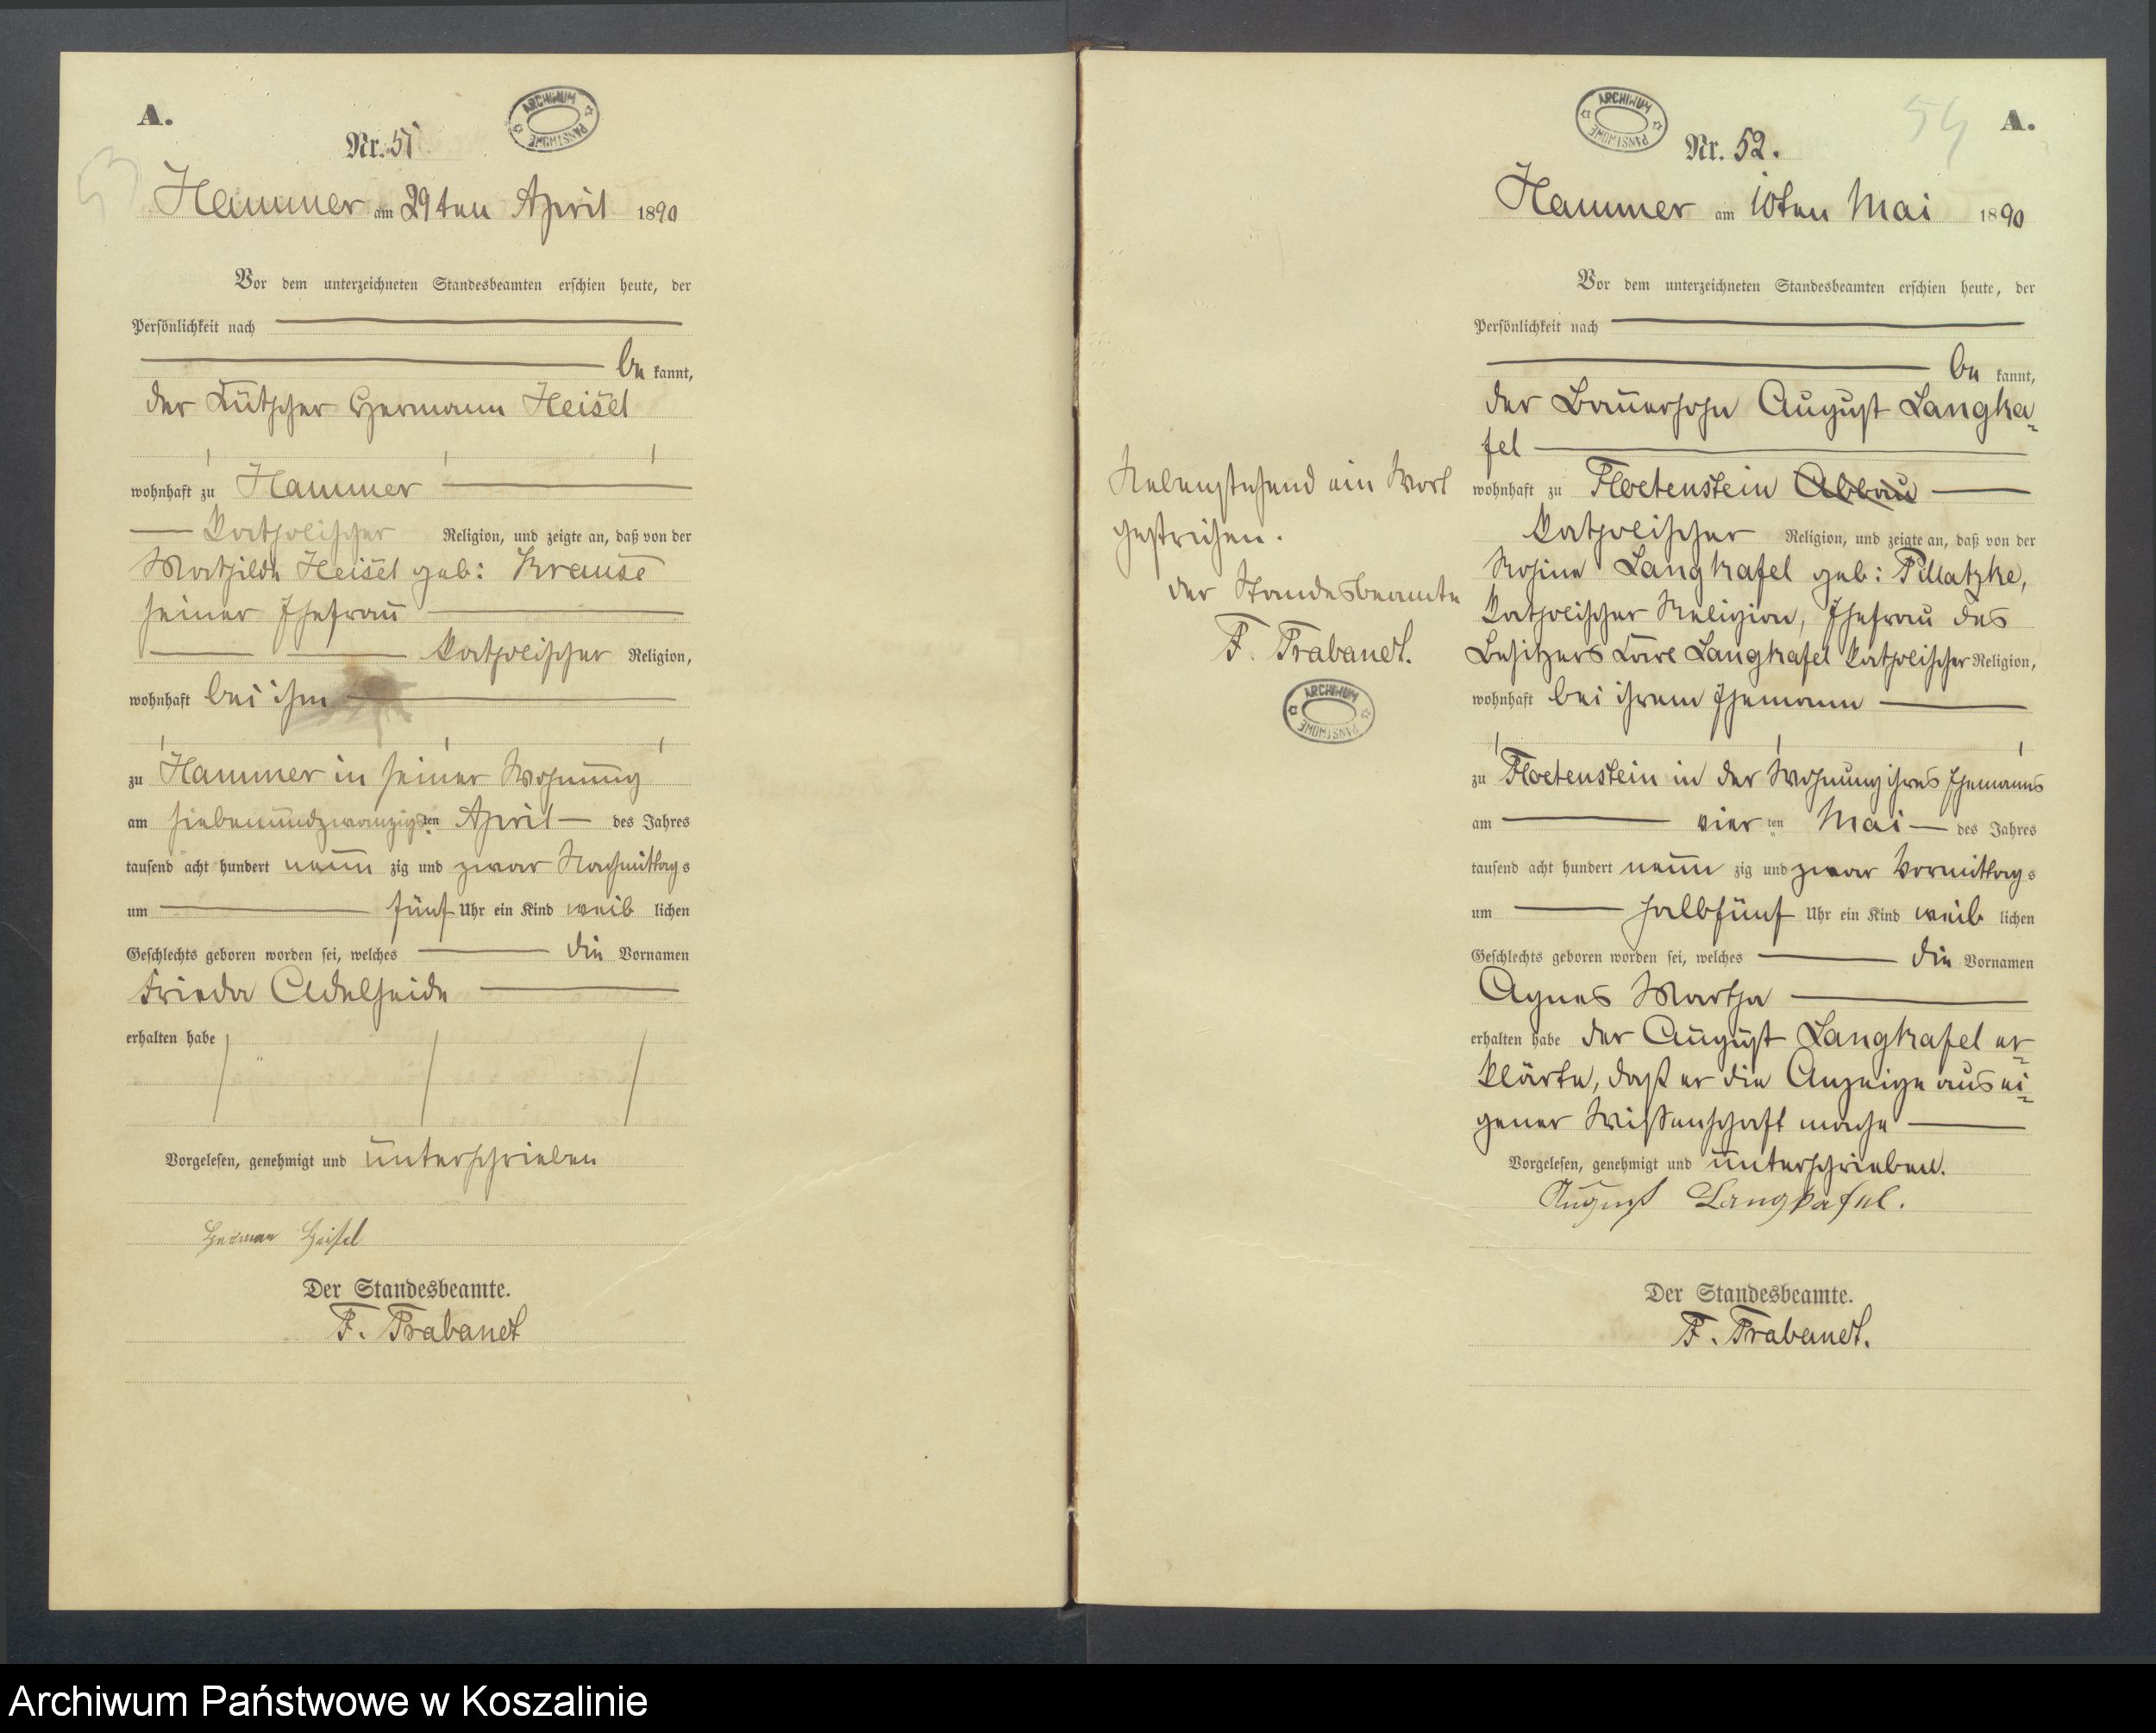 A.
ARCHIWUM PAŃSTWOWE
Nr. 51
53
Hammer am 29ten April 1890
Vor dem unterzeichneten Standesbeamten erschien heute, der
Persönlichkeit nach
be kannt,
der Kutscher Hermann Heisel
wohnhaft zu Hammer
katholischer Religion, und zeigte an, daß von der
Mathilde Heisel geb: Krause
seiner Ehefrau
katholischer Religion,
wohnhaft bei ihm
zu Hammer in seiner Wohnung
am siebenundzwanzigsten April des Jahres
tausend acht hundert neun zig und zwar Nachmittags
um fünf Uhr ein Kind weib lichen
Geschlechts geboren worden sei, welches die Vornamen
Frieda Adelheide
erhalten habe
Vorgelesen, genehmigt und unterschrieben
Herman Heisel
Der Standesbeamte.
F. Trabandt
ARCHIWUM PAŃSTWOWE
54
A.
Nr. 52.
Hammer am 10ten Mai 1890
Vor dem unterzeichneten Standesbeamten erschien heute, der
Persönlichkeit nach
be kannt,
der Bauersohn August Langka-
fel
wohnhaft zu Floetenstein Abbau
katholischer Religion, und zeigte an, daß von der
Rosine Langkafel geb: Pillatzke,
katholischer Religion, Ehefrau des
Besitzers Carl Langkafel katholischer Religion,
wohnhaft bei ihrem Ehemann
zu Floetenstein in der Wohnung ihres Ehemanns
am vier ten Mai des Jahres
tausend acht hundert neun zig und zwar Vormittags
um halbfünf Uhr ein Kind weib lichen
Geschlechts geboren worden sei, welches die Vornamen
Agnes Martha
erhalten habe der August Langkafel er-
klärte, daß er die Anzeige aus ei-
gener Wissenschaft mache
Vorgelesen, genehmigt und unterschrieben.
August Langkafel.
Der Standesbeamte.
F. Trabandt.
Nebenstehend ein Wort
gestrichen.
der Standesbeamte
F. Trabandt.
ARCHIWUM PAŃSTWOWE
Archiwum Państwowe w Koszalinie